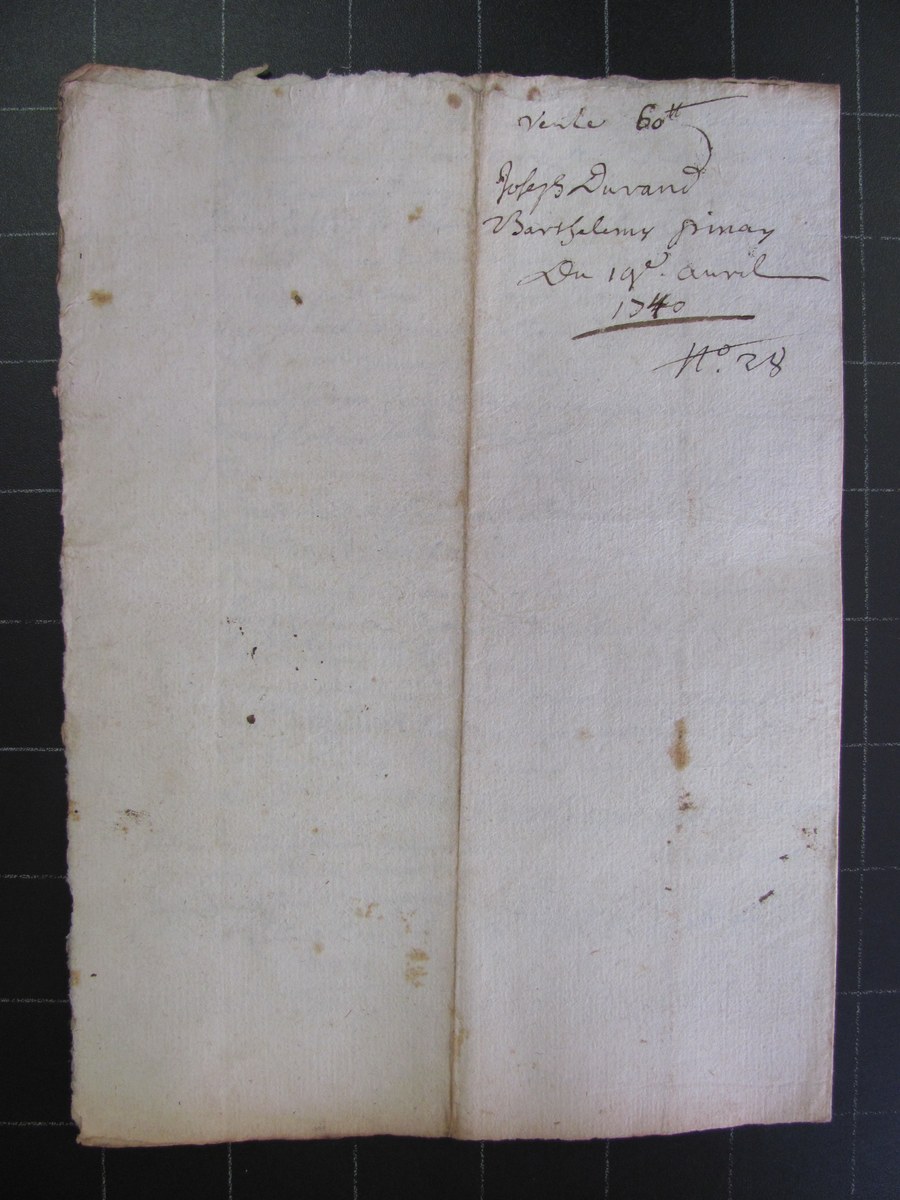 Vente 60tt
Joseph Durand
Barthelemy grinay
Du 19e. auril
1740
No. 28